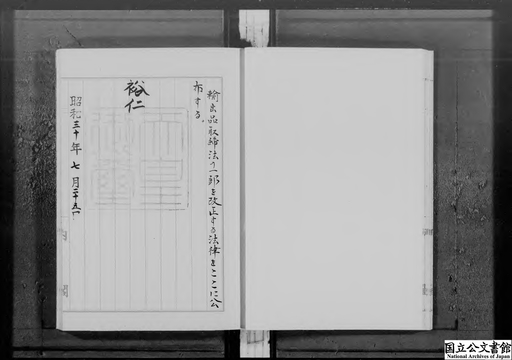 輸出品取締法の一部を改正する法律をここに公
布する。
裕仁
天皇
御璽
昭和三十年七月二十五日
国立公文書館
National Archives of Japan